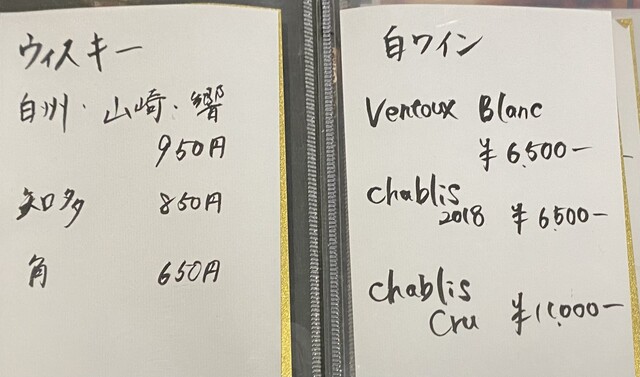 ウィスキー
白州・山崎・響
950円
知多 850円
角 650円
白ワイン
Ventoux Blanc
¥6,500-
chablis
2018 ¥6,500-
chablis
Cru ¥11,000-